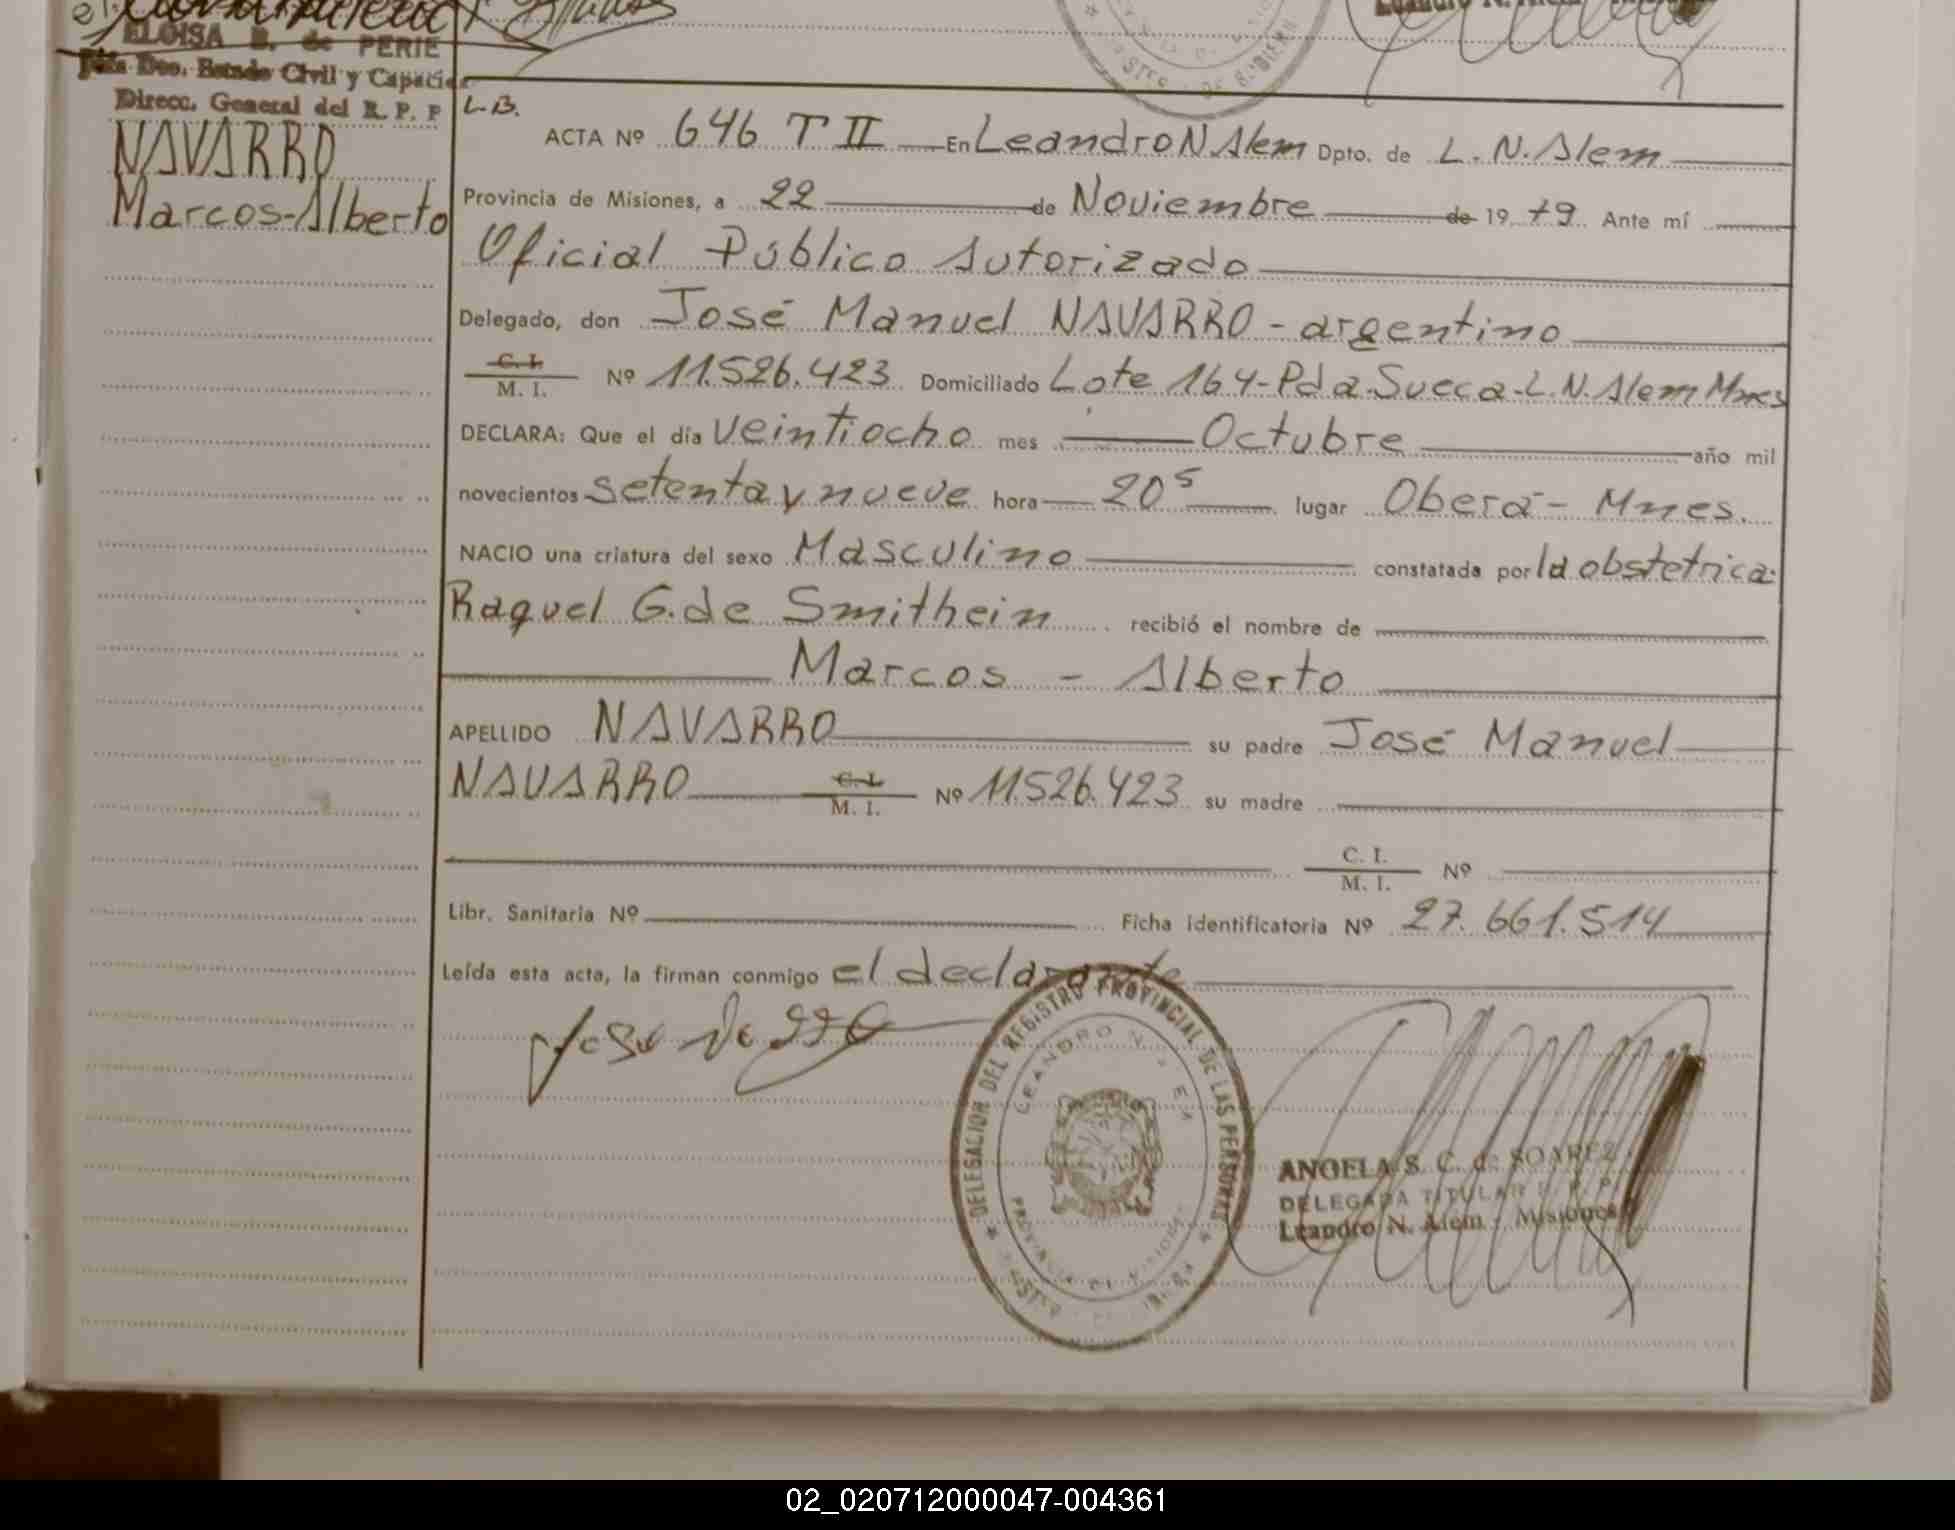 ELOISA B. de PERIE
Jefa Dpo. Estado Civil y Capacidad
Direcc. General del R. P. P
NAVARRO
Marcos-Alberto
L.B.
ACTA Nº 646 T II En Leandro N Alem Dpto. de L. N. Alem
Provincia de Misiones, a 22 de Noviembre de 19 79 Ante mí
Oficial Público Autorizado
Delegado, don José Manuel NAVARRO - argentino
C. I.
M. I. Nº 11.526.423 Domiciliado Lote 164-Pda-Sueca-L.N.Alem Mnes
DECLARA: Que el día veintiocho mes Octubre año mil
novecientos setenta y nueve hora 20⁵ lugar Oberá - Mnes.
NACIO una criatura del sexo Masculino constatada por la obstetrica
Raquel G. de Smithein recibió el nombre de
Marcos - Alberto
APELLIDO NAVARRO su padre José Manuel
NAVARRO C. I. M. I. Nº 11.526.423 su madre
C. I.
M. I. Nº
Libr. Sanitaria Nº Ficha identificatoria Nº 27.661.514
Leída esta acta, la firman conmigo el declarante
DELEGACION DEL REGISTRO PROVINCIAL DE LAS PERSONAS
LEANDRO N. EM
PROVINCIA
ANGELA S. C. de SOAREZ
DELEGADA TITULAR R. P. P.
Leandro N. Alem - Misiones
02_020712000047-004361